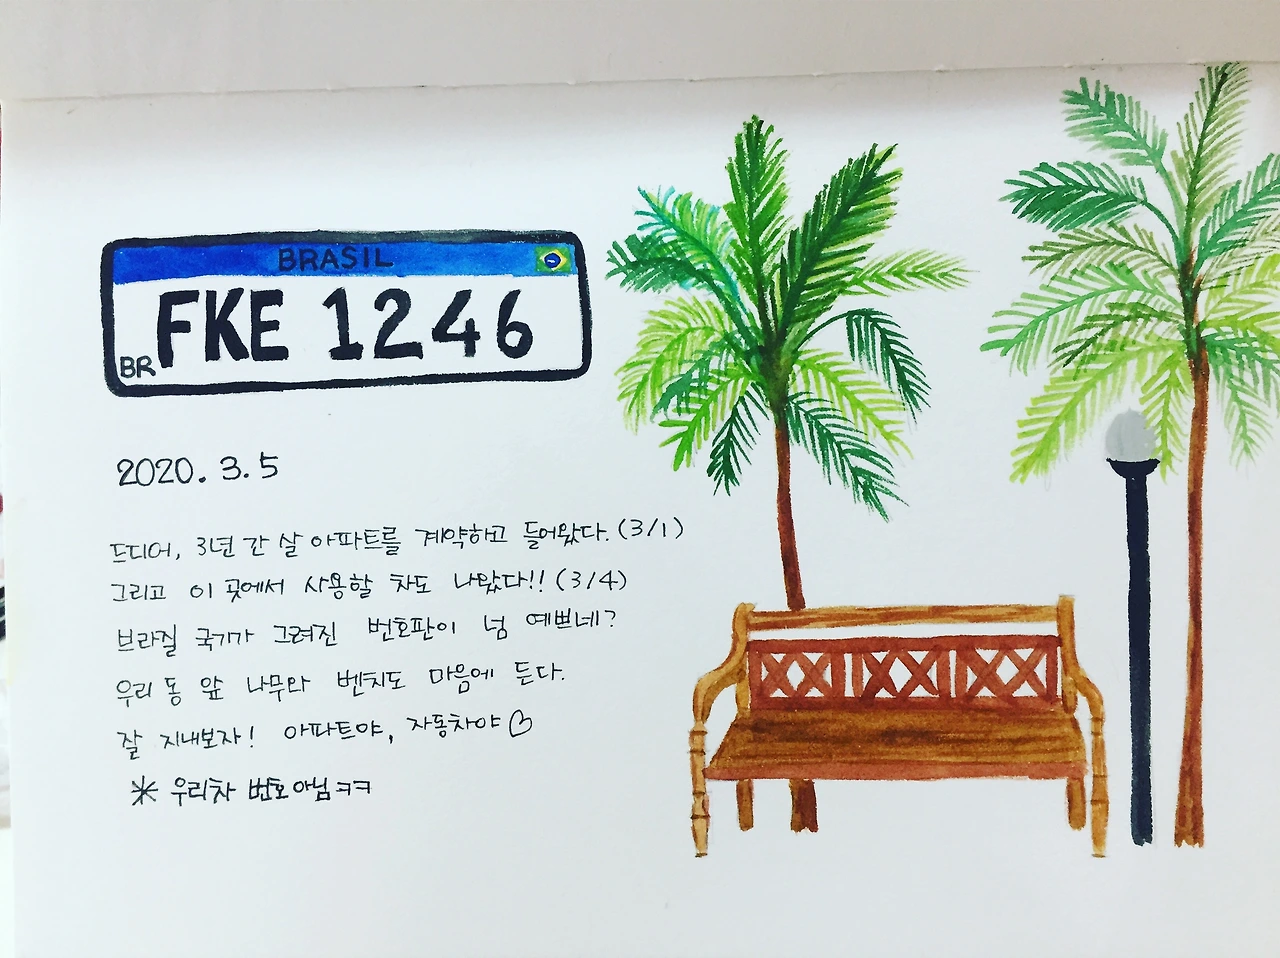 BRASIL
FKE 1246
BR
2020. 3. 5
드디어, 3년 간 살 아파트를 계약하고 들어왔다. (3/1)
그리고 이 곳에서 사용할 차도 나왔다!! (3/4)
브라질 국기가 그려진 번호판이 넘 예쁘네?
우리 동 앞 나무와 벤치도 마음에 든다.
잘 지내보자! 아파트야, 자동차야♡
* 우리차 번호아님ㅋㅋ